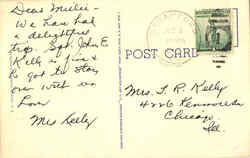 Dear Millie –
We have had
a delightful
trip. Sgt. John E.
Kelly is fine &
so glad to stay
over with us
Love
Mrs Kelly
POST CARD
Mrs. T. R. Kelly
4226 Kenmore
Chicago,
Ill.